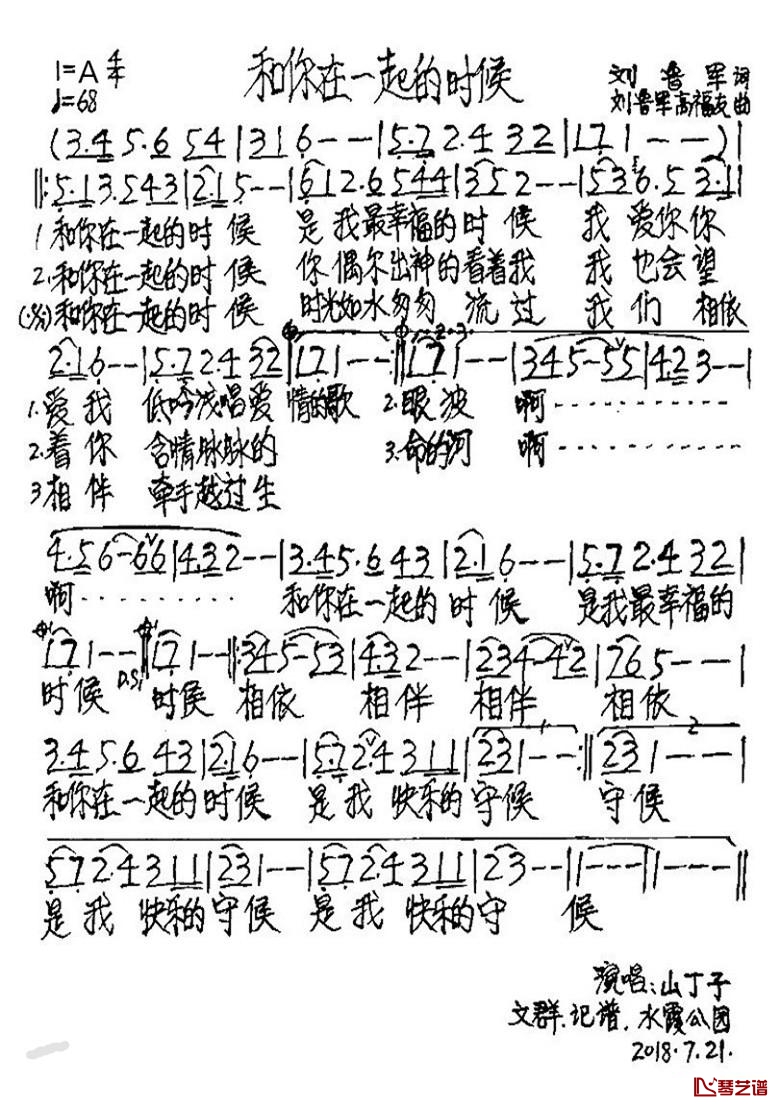 1=A 4/4 和你在一起的时候 刘鲁军词
♩=68 刘鲁军高福友曲
(3.4 5.6 54|316--|5.72.4 32|171--)|
‖:5.13.543|215--|612.6544|352--|536.5 3.1|
1 和你在一起的时 候 是 我最幸福的时 候 我 爱你你
2.和你在一起的时 候 你 偶尔出神的看着我 我 也会望
(.%)和你在一起的时 候 时光如水匆匆 流 过 我 们 相依
2.16--|5.72.4 32‖171--:‖171--|345-55|423--|
1.爱 我 低吟浅唱爱 情的歌 2.眼 波 啊
2.着 你 含情脉脉的 3.命的河 啊
3相 伴 牵手越过生
4.56-66|432--|3.45.6 43|2.16--|5.72.4 32|
啊 和你在一起的 时 候 是我最幸福的
171--‖171--‖:345-53|432--|234-42|765--|
时候 D.S. 时候 相依 相伴 相伴 相依
3.45.6 43|216--|572.4311|231--:‖231--|
和你在一起的时候 是 我 快乐的守候 守候
572.4311|231--|572.4311|23--|1---|1---‖
是 我 快乐的守候 是 我 快乐的守 候
演唱:山丁子
文群.记谱.水霞公园
2018.7.21.
琴艺谱